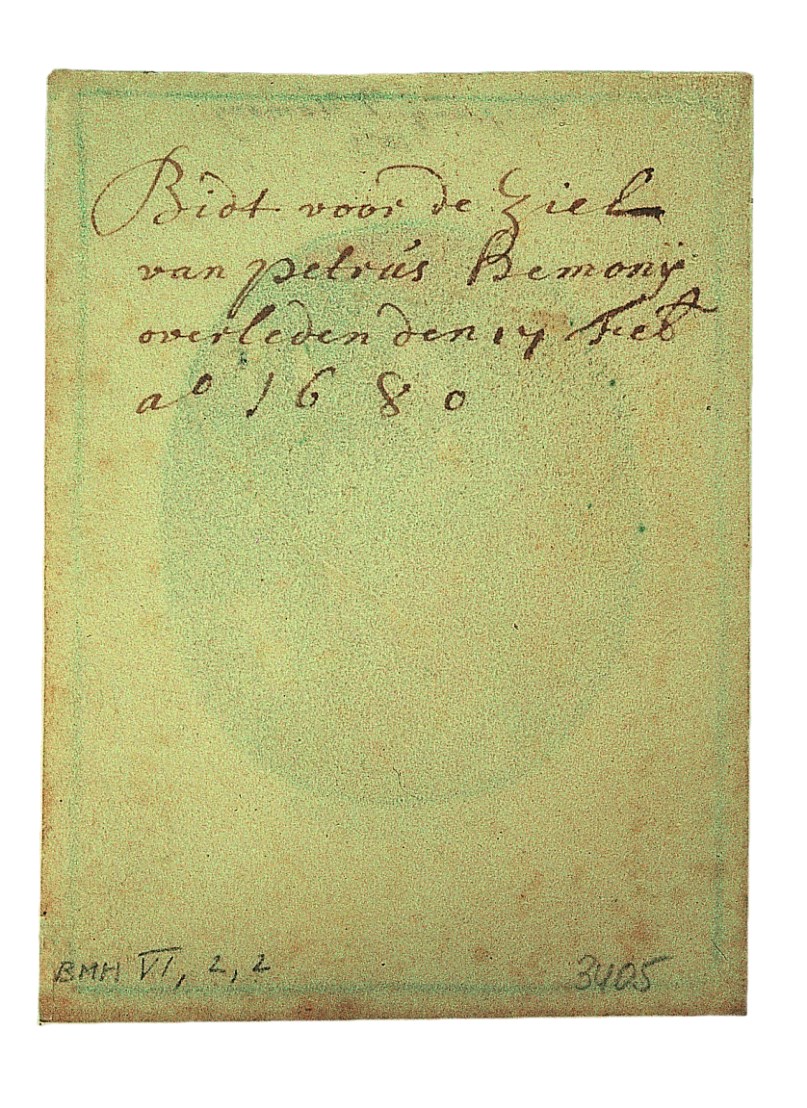 Bidt voor de Ziel
van petrús Hemonÿ
overleden den 17 Feb
a⁰ 1680
BMH VI, 2, 2
3405